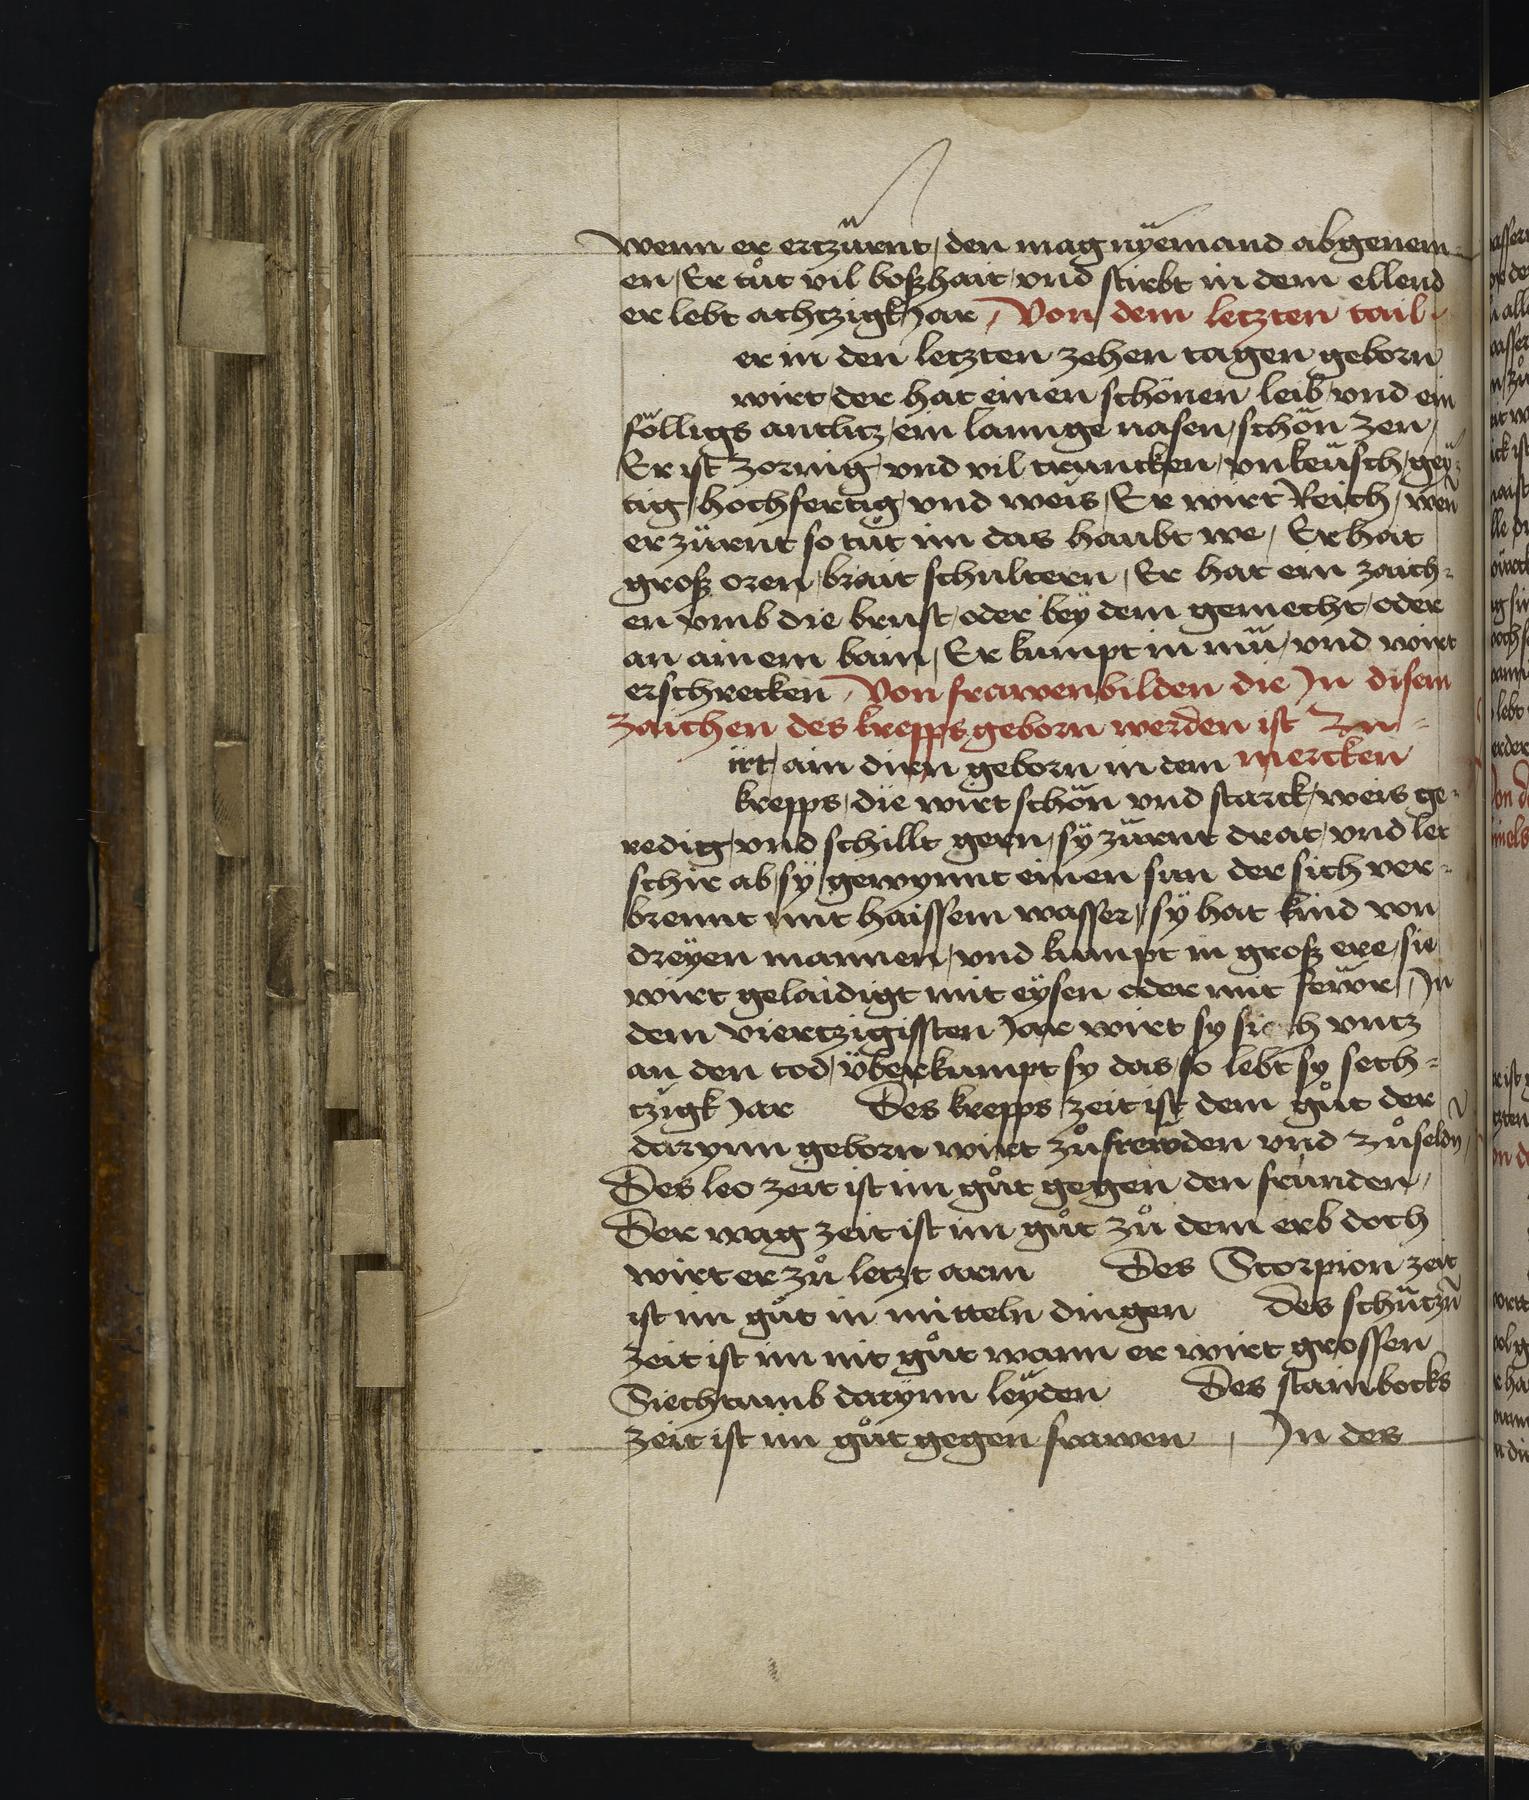 wenn er ertzürnt / den mag nÿemand abgenem-
en / Er tůt vil boßhait / vnd stirbt in dem ellend
er lebt achtzigk Jar / Von dem letzten tail
er in den letzten zehen tagen geborn
wirt / der hat einen schönen leib / vnd ein
fölligs antlitz / ein lannge nasen / schön zen /
Er ist zornig / vnd vil truncken / vnkeüsch / gey-
tig / hochfertig / vnd weis / Er wirt Reich / weñ
er zürnt so tůt im das haubt we / Er hat
groß oren / brait schultern / Er hat ein zaich-
en vmb die brust / oder beÿ dem gemecht / oder
an ainem bain / Er kumpt in mü / vnd wirt
erschrecken / Von frawenbilden die Jn disem
zaichen des krepps geborn werden ist Zu-
irt / ain dirn geborn in dem mercken
krepps / die wirt schön vnd starck / weis ge-
redig / vnd schillt gern / sÿ zürnt drat / vnd let
schir ab / sÿ gewynnt einen sun der sich ver-
brennt mit haissem wasser / sÿ hat kind von
dreÿen mannen / vnd kumpt in groß ere / sie
wirt gelaidigt mit eÿsen oder mit fewr / Jn
dem viertzigissten Jar wirt sy siech vntz
an den tod / überkumpt sy das / so lebt sy sech-
tzigk Jar Des krepps zeit ist dem gůt der
darynn geborn wirt zůfrewden vnd zůseldñ /
Des leo zeit ist im gůt gegen den frunden /
Der wag zeit ist im gůt zů dem erb doch
wirt er zů letzt arm Des Scorpion zeit
ist im gůt in mitteln dingen des schützñ
zeit ist im nit gůt wann er wirt grossen
Siechtumb darÿnn leÿden Des stainbocks
zeit ist im gůt gegen frawen / Jn des